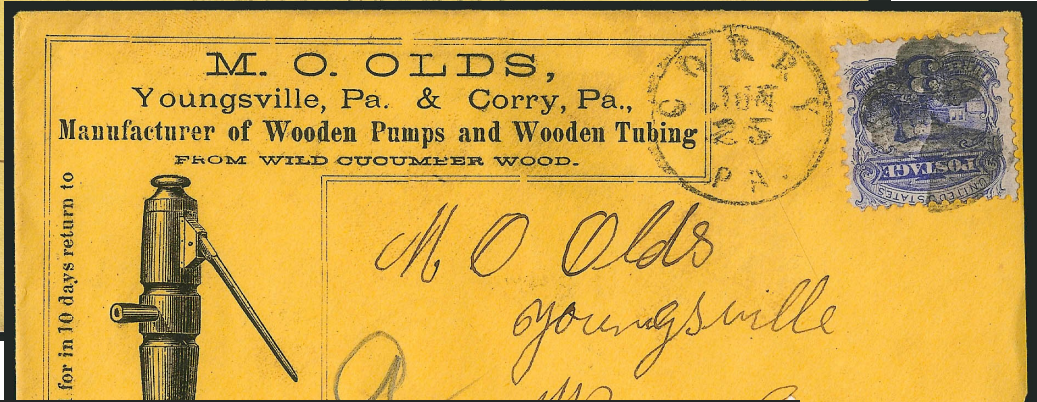 M. O. OLDS,
Youngsville, Pa. & Corry, Pa.,
Manufacturer of Wooden Pumps and Wooden Tubing
FROM WILD CUCUMBER WOOD.
for in 10 days return to
CORRY
JUN
25
PA.
UNITED STATES
POSTAGE
M O Olds
Youngsville